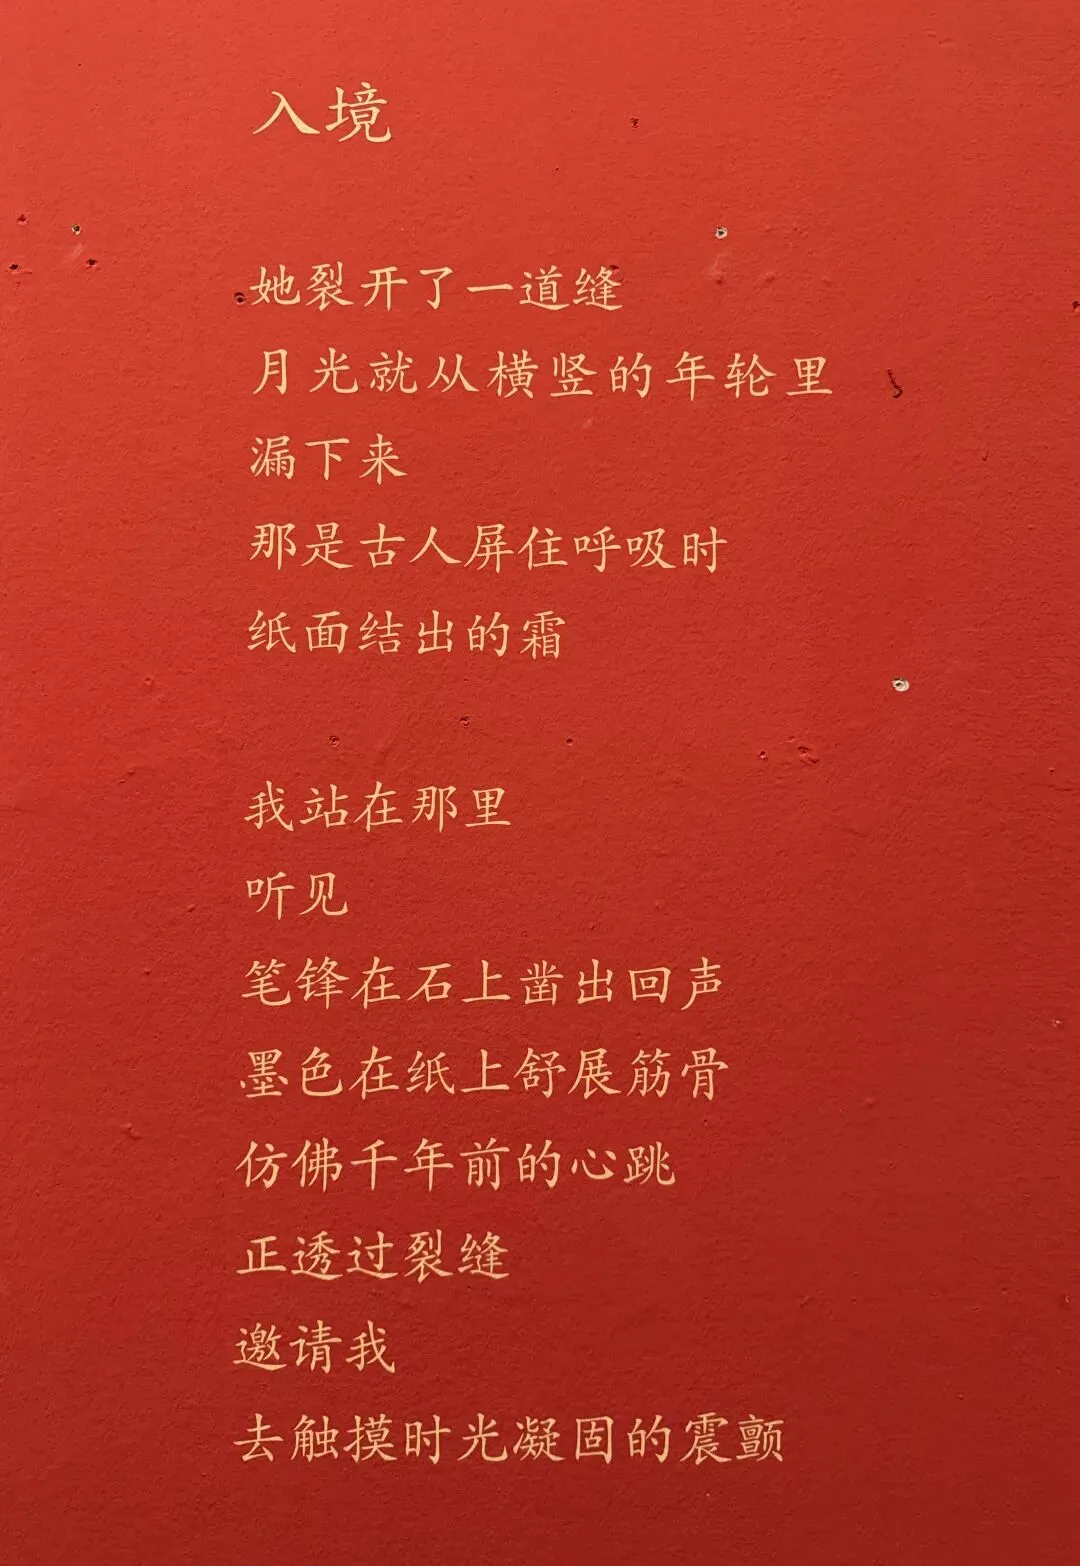 入境
她裂开了一道缝
月光就从横竖的年轮里
漏下来
那是古人屏住呼吸时
纸面结出的霜
我站在那里
听见
笔锋在石上凿出回声
墨色在纸上舒展筋骨
仿佛千年前的心跳
正透过裂缝
邀请我
去触摸时光凝固的震颤